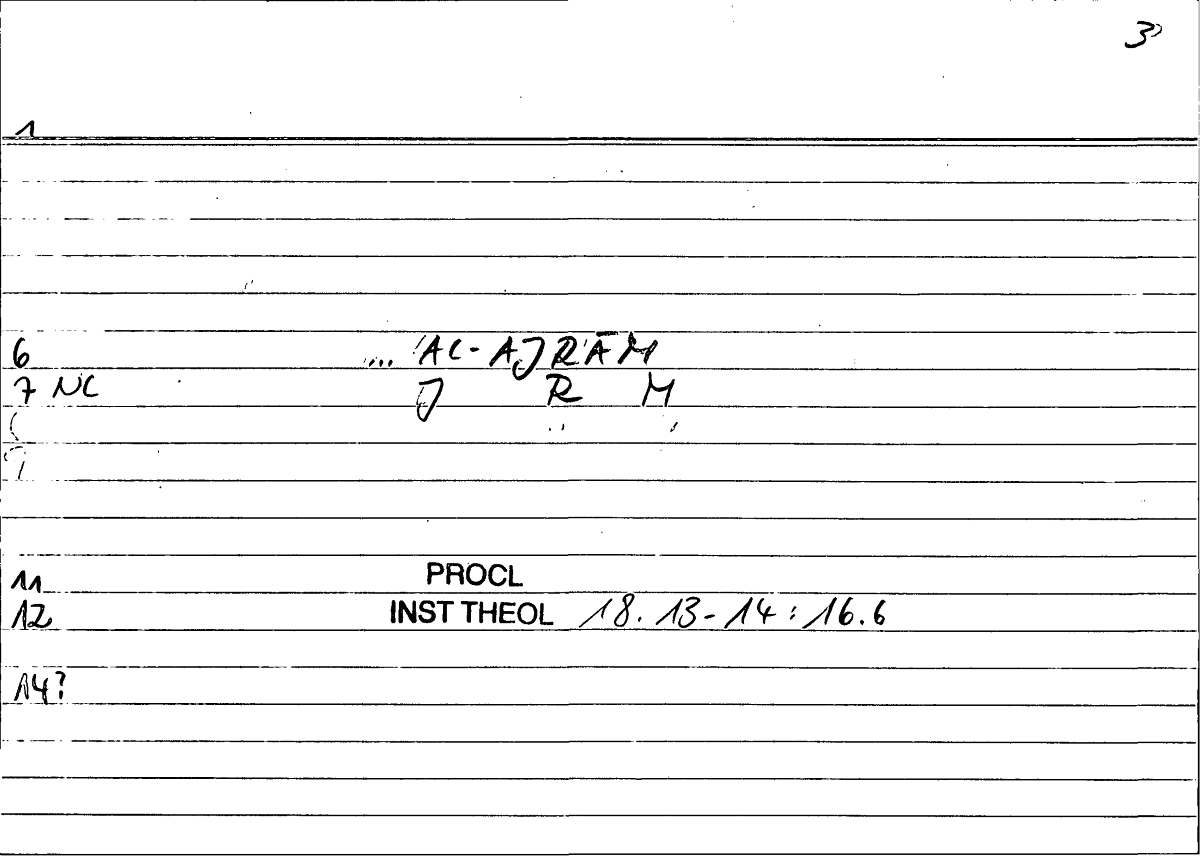 3
1
6 ... 'AL-AJRĀM
7 NC J R M
11 PROCL
12 INST THEOL 18.13-14:16.6
14?